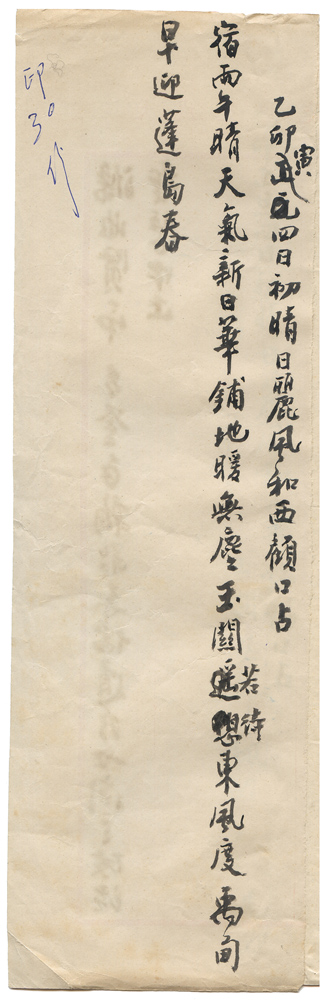 乙卯寅元四日初晴日麗風和西顧口占
宿雨乍晴天氣新日華鋪地暖無塵玉關遙想東風度禹甸
若待
早迎蓬島春
印
30